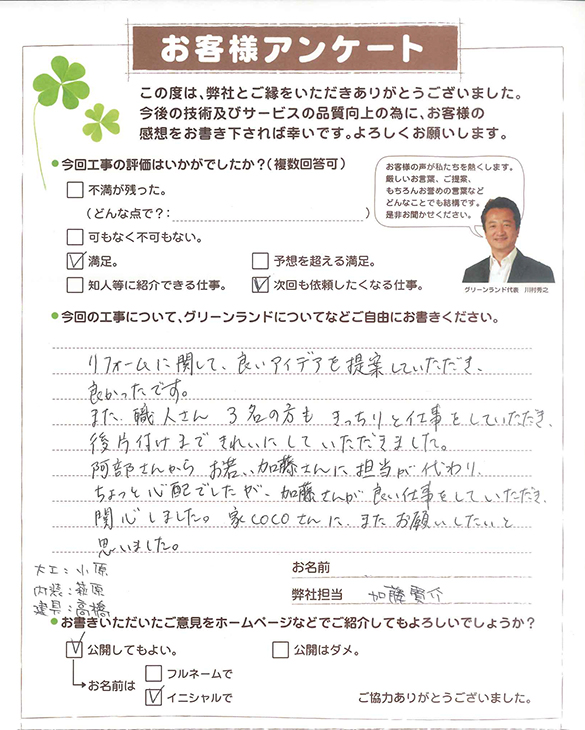 お客様アンケート
この度は、弊社とご縁をいただきありがとうございました。
今後の技術及びサービスの品質向上の為に、お客様の
感想をお書き下されば幸いです。よろしくお願いします。
●今回工事の評価はいかがでしたか？（複数回答可）
不満が残った。
（どんな点で？：　）
可もなく不可もない。
満足。　予想を超える満足。
知人等に紹介できる仕事。　次回も依頼したくなる仕事。
お客様の声が私たちを熱くします。
厳しいお言葉、ご提案、
もちろんお誉めの言葉など
どんなことでも結構です。
是非お聞かせください。
グリーンランド代表　川村秀之
●今回の工事について、グリーンランドについてなどご自由にお書きください。
リフォームに関して、良いアイデアを提案していただき、
良かったです。
また、職人さん 3名の方も きっちりと仕事をしていただき、
後片付けまできれいにしていただきました。
阿部さんから お若い、加藤さんに担当が代わり、
ちょっと心配でしたが、加藤さんが良い仕事をしていただき、
関心しました。家COCOさんに、またお願いしたいと
思いました。
大工：小原
内装：萩原
建具：高橋
お名前
弊社担当　加藤寛介
●お書きいただいたご意見をホームページなどでご紹介してもよろしいでしょうか？
公開してもよい。　公開はダメ。
お名前は　フルネームで
イニシャルで
ご協力ありがとうございました。